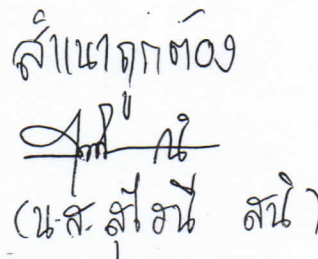 สำเนาถูกต้อง
(น.ส. สุไรนี สนิ)